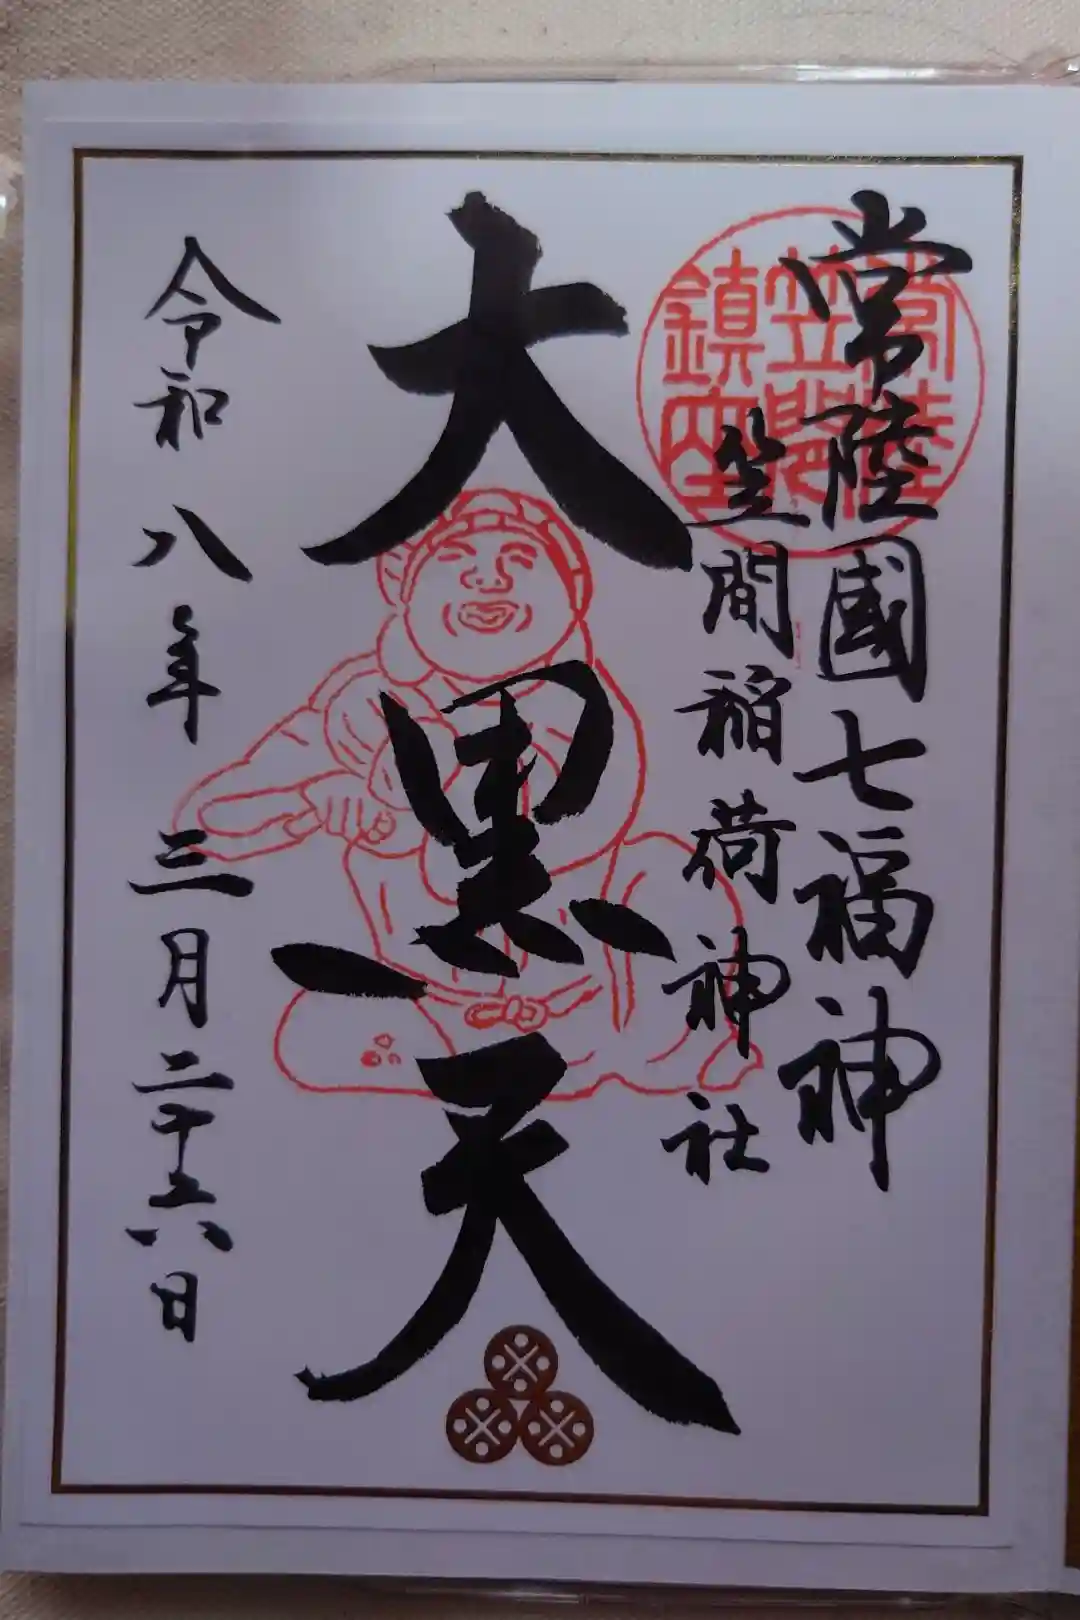 常陸國七福神
笠間稲荷神社
常陸
笠間
鎮座
大黒天
令和八年三月二十六日